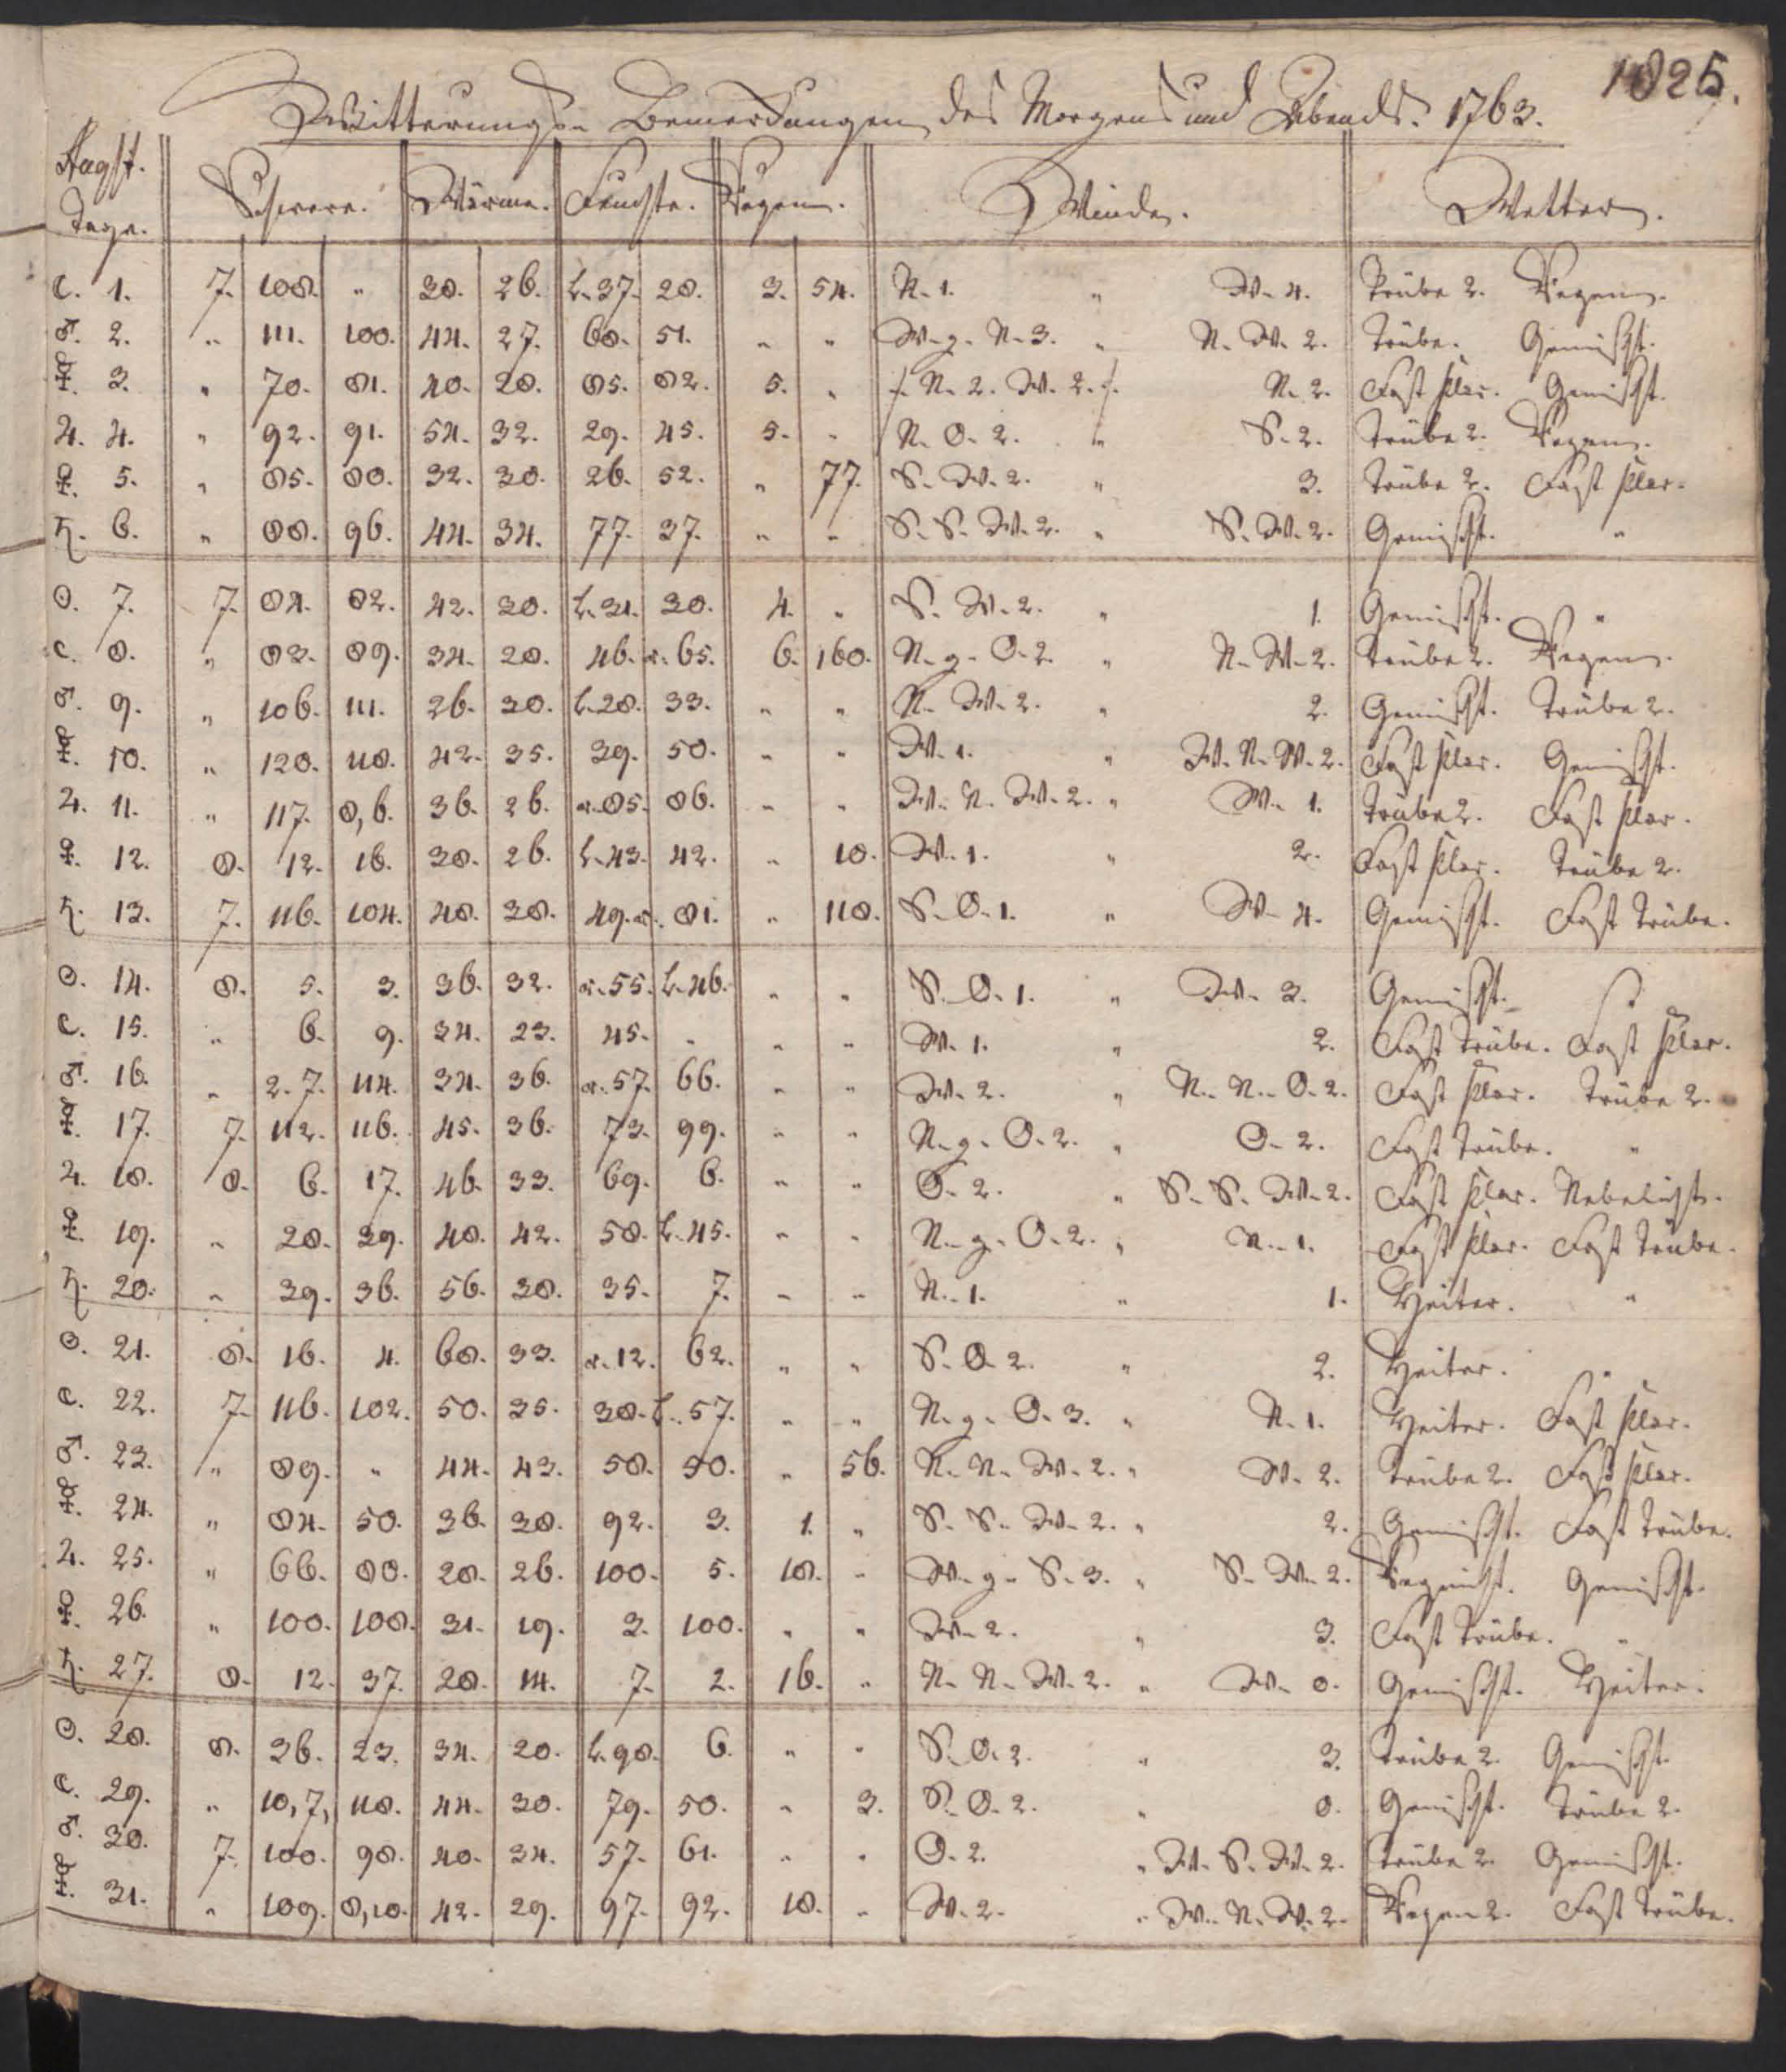 1825.
Witterungs-Bemerkungen des Morgens und Abends. 1763.
Augst.
Tage. Schwere. Wärme. Feuchte. Regen. Winde. Wetter.
☾. 1. 7. 108. " 38. 26. L. 37. 28. 3. 54. N. 1. " W. 4. Trübe 2. Regen.
♂. 2. " 111. 100. 44. 27. 68. 51. " " W. g. N. 3. " N. W. 2. Trübe. Gemischt.
☿. 3. " 70. 81. 40. 28. 85. 82. 5. " N. 2. W. 2. N. 2. Fast klar. Gemischt.
♃. 4. " 92. 91. 54. 32. 29. 45. 5. " N. O. 2. " S. 2. Trübe 2. Regen.
♀. 5. " 85. 80. 32. 30. 26. 52. " 77. S. W. 2. " 3. Trübe 2. Fast klar.
♄. 6. " 88. 96. 44. 34. 77. 37. " " S. S. W. 2. " S. W. 2. Gemischt. "
☉. 7. 7. 84. 82. 42. 30. L. 31. 30. 4. " S. W. 2. " 1. Gemischt. "
☾. 8. " 83. 89. 34. 28. 46. r. 65. 6. 160. N. g. O. 2. " N. W. 2. Trübe 2. Regen.
♂. 9. " 106. 111. 26. 30. L. 28. 33. " " N. W. 2. " 2. Gemischt. Trübe 2.
☿. 10. " 120. 118. 42. 35. 39. 50. " " W. 1. " W. N. W. 2. Fast klar. Gemischt.
♃. 11. " 117. 8,6. 36. 26. r. 85. 86. " " W. N. W. 2. " W. 1. Trübe 2. Fast klar.
♀. 12. 8. 12. 16. 38. 26. L. 43. 42. " 18. W. 1. " 2. Fast klar. Trübe 2.
♄. 13. 7. 116. 104. 48. 38. 49. r. 81. " 118. S. O. 1. " W. 4. Gemischt. Fast Trübe.
☉. 14. 8. 5. 3. 36. 32. r. 55. L. 46. " " S. O. 1. " W. 3. Gemischt.
☾. 15. " 6. 9. 34. 23. 45. " " " W. 1. " 2. Fast Trübe. Fast klar.
♂. 16. " 2. 7. 114. 34. 36. r. 57. 66. " " W. 2. " N. N. O. 2. Fast klar. Trübe 2.
☿. 17. 7. 112. 116. 45. 36. 73. 99. " " N. g. O. 2. " O. 2. Fast Trübe. "
♃. 18. 8. 6. 17. 46. 33. 69. 6. " " O. 2. " S. S. W. 2. Fast klar. Nebelicht.
♀. 19. " 28. 39. 48. 42. 58. L. 45. " " N. g. O. 2. " N. 1. Fast klar. Fast Trübe.
♄. 20. " 39. 36. 56. 38. 35. 7. " " N. 1. " 1. Heiter. "
☉. 21. 8. 16. 4. 68. 33. r. 12. 62. " " S. O. 2. " 2. Heiter. "
☾. 22. 7. 116. 102. 50. 35. 38. L. 57. " " N. g. O. 3. " N. 1. Heiter. Fast klar.
♂. 23. " 89. " 44. 43. 58. 50. " 56. N. N. W. 2. " W. 2. Trübe 2. Fast klar.
☿. 24. " 84. 50. 36. 38. 92. 3. 1. " S. S. W. 2. " 2. Gemischt. Fast Trübe.
♃. 25. " 66. 80. 28. 26. 100. 5. 18. " W. g. S. 3. " S. W. 2. Regnicht. Gemischt.
♀. 26. " 100. 108. 31. 19. 3. 100. " " W. 2. " 3. Fast Trübe. "
♄. 27. 8. 12. 37. 28. 14. 7. 2. 16. " N. N. W. 2. " W. 0. Gemischt. Heiter.
☉. 28. 8. 36. 23. 34. 20. L. 98. 6. " " S. O. 2. " 3. Trübe 2. Gemischt.
☾. 29. " 10,7, 118. 44. 30. 79. 50. " 3. S. O. 2. " 0. Gemischt. Trübe 2.
♂. 30. 7. 100. 98. 40. 34. 57. 61. " " O. 2. " W. S. W. 2. Trübe 2. Gemischt.
☿. 31. " 109. 8,10. 42. 29. 97. 92. 18. " W. 2. " W. N. W. 2. Regen 2. Fast Trübe.